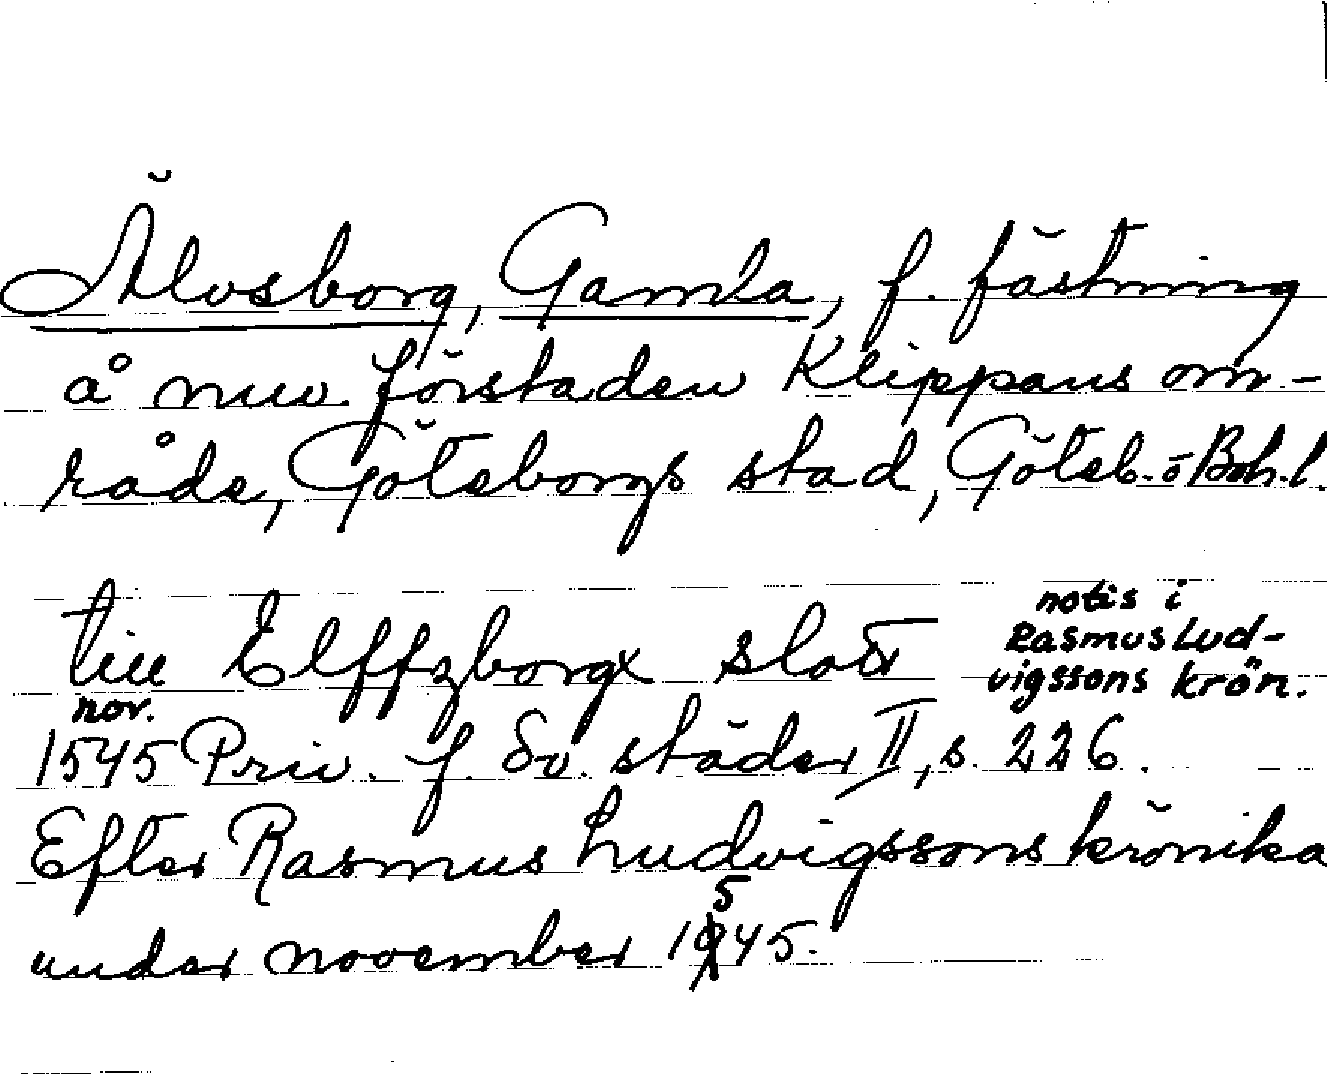 Älvsborg, Gamla, f. fästning
å nuv. förstaden Klippans om-
råde, Göteborgs stad, Göteb. o Boh. l.
till Elffzborgx slott notis i
Rasmus Lud-
vigssons krön.
nov.
1545 Priv. f. Sv. städer II, s. 226.
Efter Rasmus Ludvigssons krönika
under november 1545.